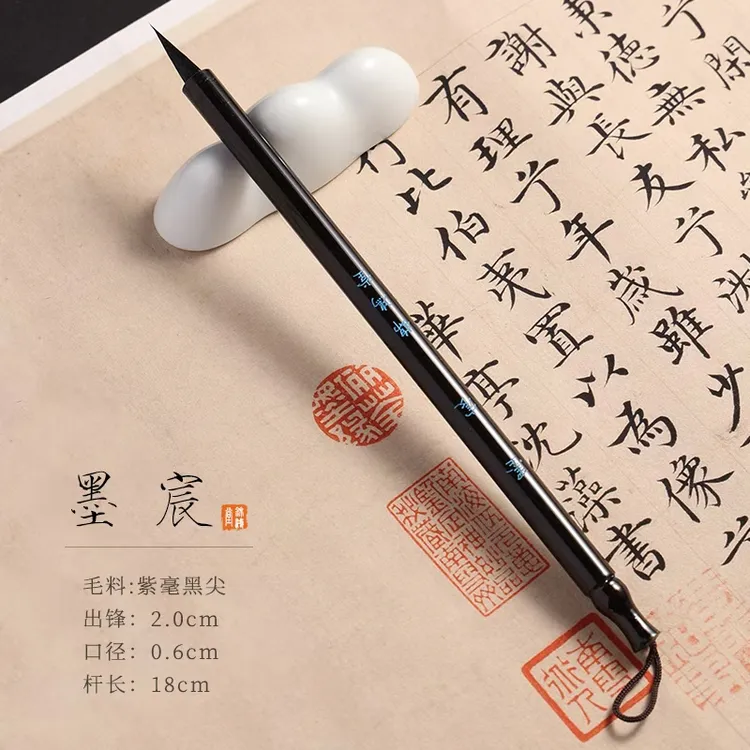 閉
秉德無私
謝與長友兮淑
有理兮年歲雖少
行比伯夷置以為像兮
華亭沈藻書
墨宸
毛料:紫毫黑尖
出锋: 2.0cm
口径: 0.6cm
杆长: 18cm